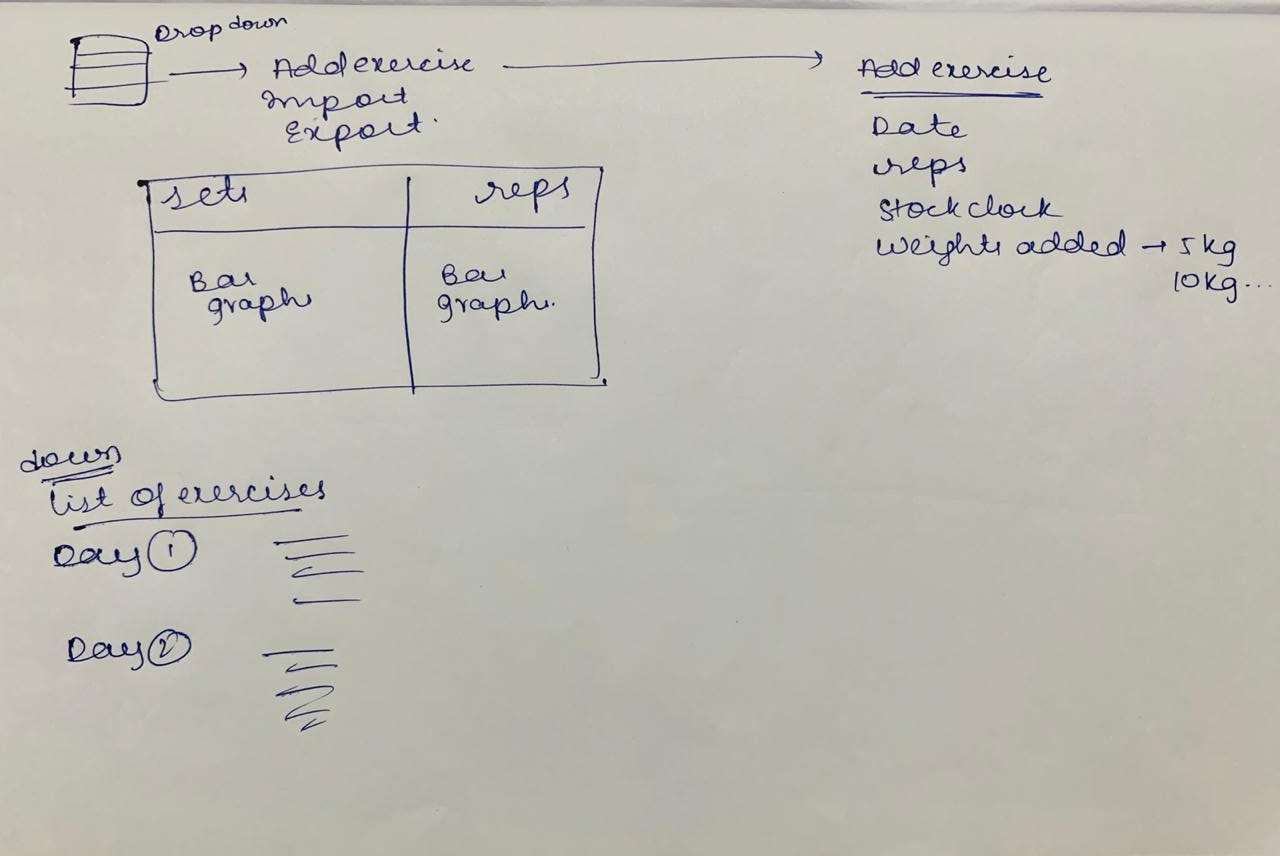 Drop down
Add exercise
Import
Export.
Add exercise
Date
reps
Stock clock
Weights added → 5 kg
10 kg...
sets
reps
Bar
graph
Bar
graph.
down
List of exercises
Day 1
Day 2